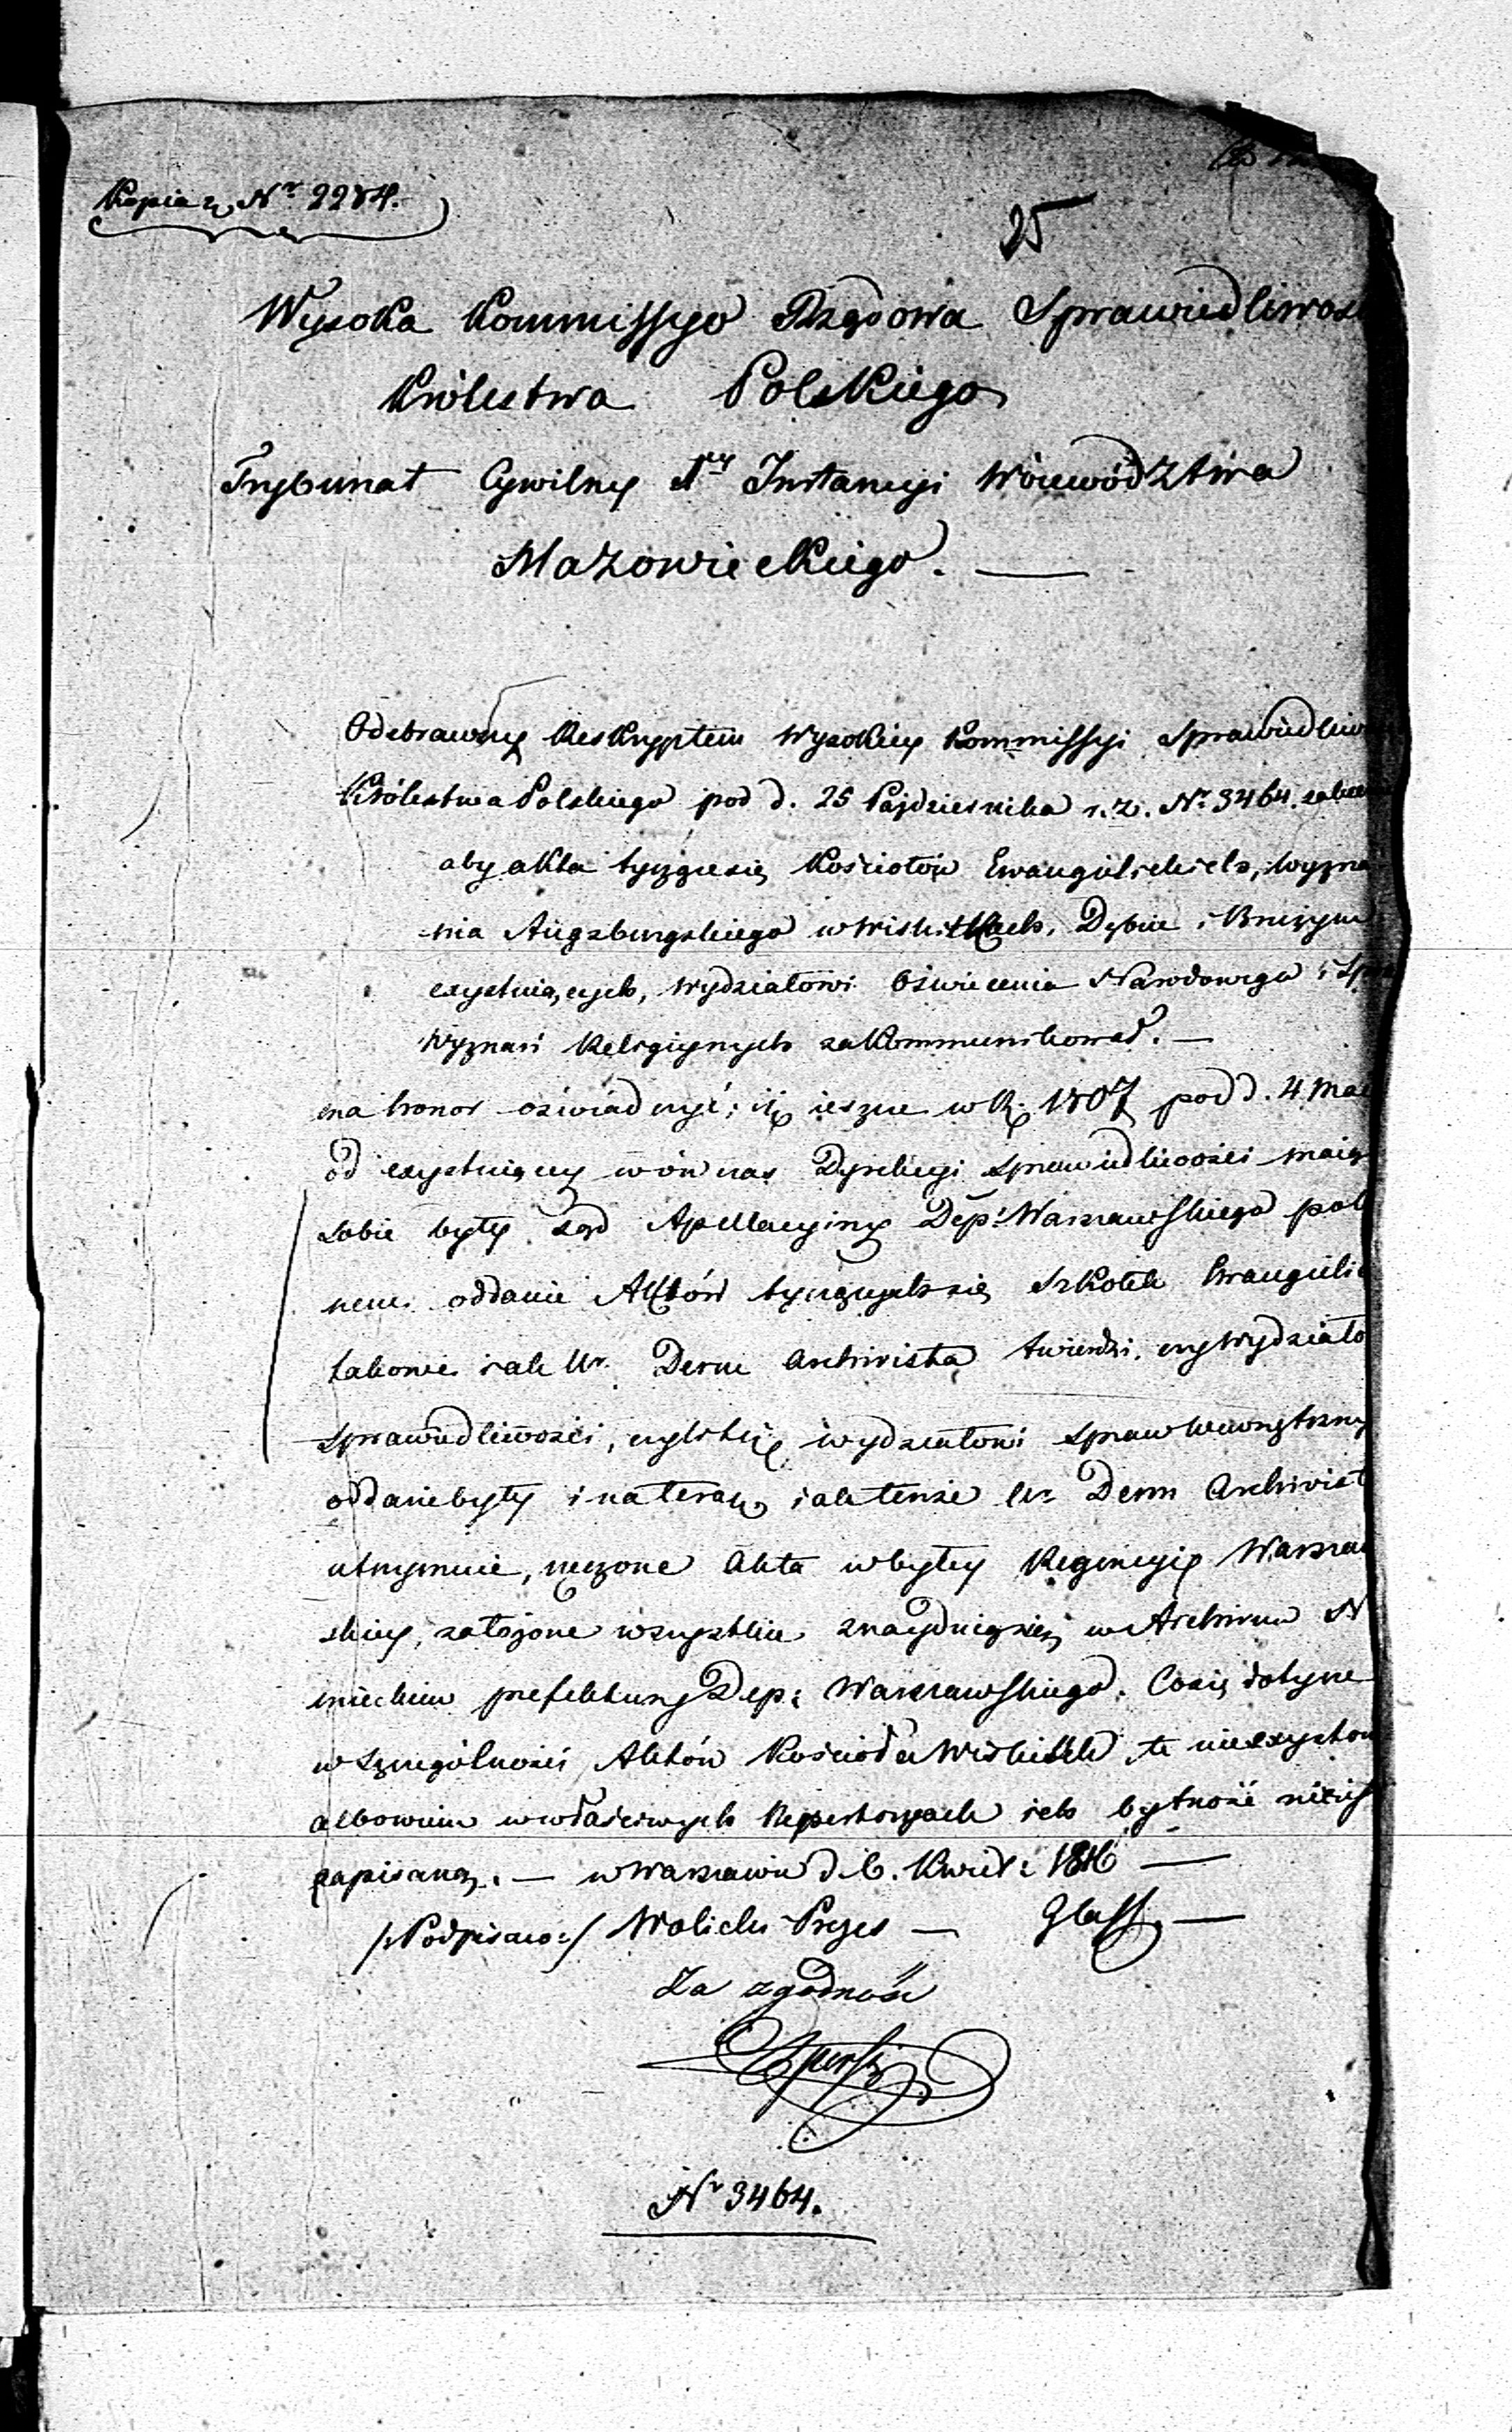 Kopia z Nr 2284.
25
Wysoka Kommissyo Rządowa Sprawiedliwośc
Królestwa Polskiego
Trybunał Cywilny 1ey Instancyi Woiewództwa
Mazowieckiego. —
Odebrawszy Reskryptem Wysokiey Kommissyi Sprawiedliw
Królestwa Polskiego pod d. 25 Paździersnika r. z. Nr 3464. zalece
aby akta tyczące się Kościołów Ewangielickich, wyzna
nia Augszburgskiego w Wiskitkach, Dębie i
exystuiących, Wydziałowi Oświecenia Narodowego i
Wyznań Religiynych zakommunikował. —
ma honor oświadczyć; iż ieszcze w R. 1807 pod d. 4 Ma
od exystuiącey wówczas Dyrekcyi Sprawiedliwości maią
sobie były Sąd Apellacyiny Dep: Warszawskiego pol
cone oddanie Aktów tyczących się Szkółek Ewangielic
takowe iak Ur. Derm Archivista twierdzi, czy Wydziało
Sprawiedliwości, czyli też wydziałowi spraw Wewnętrzny
oddane były i na teraz, iak tenże Ur Derm Archivist
utrzymuie, rzeczone Akta w byłey Regencyi Warszaw
skiey, założone wszystkie znayduią się w Archivum N
mieckim prefektury Dep: Warszawskiego. Co się dotycze
w szczególności Aktów Kościoła Wiskitek te nie exystow
albowiem w właściwych Repertoryach ich bytność nie iest
zapisaną. — w Warszawie d. 6. Kwiet: 1816 —
/:Podpisano:/ Wolicki Prezes — Glass. —
Za zgodność
Nr 3464.